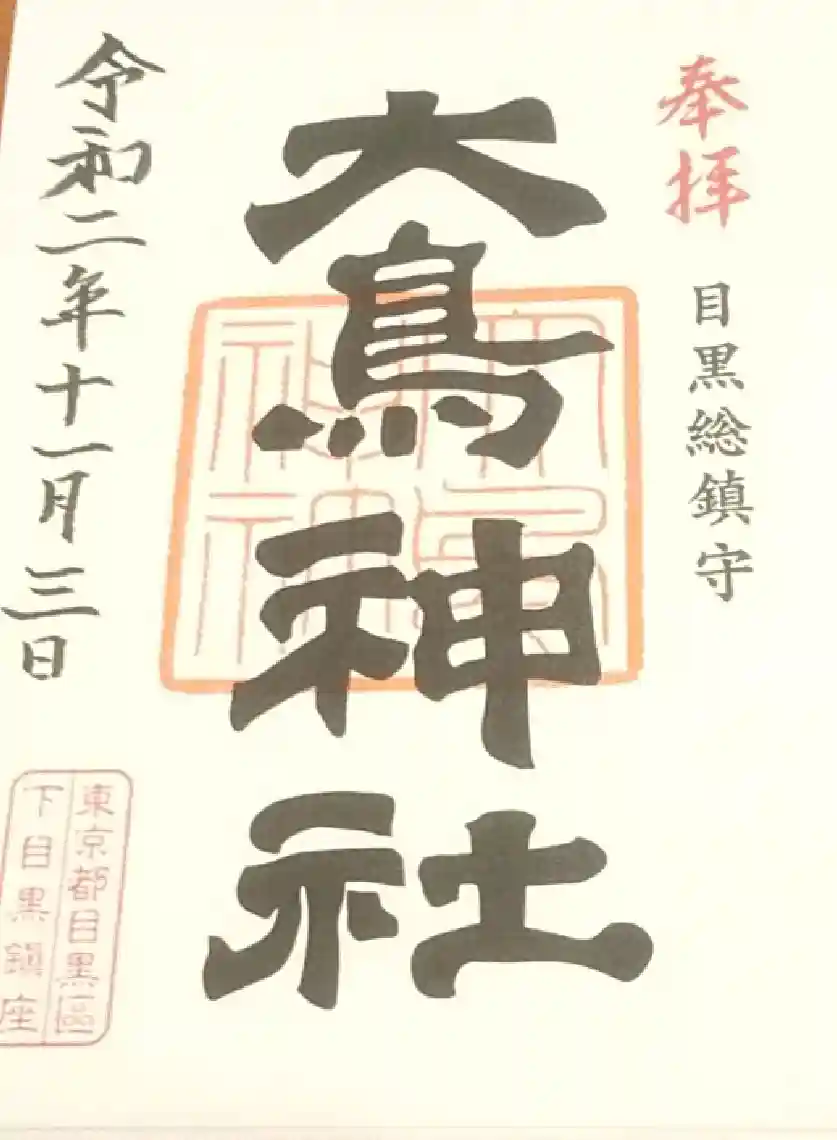 奉拝
目黒総鎮守
大鳥神社
令和二年十一月三日
東京都目黒區
下目黒鎮座